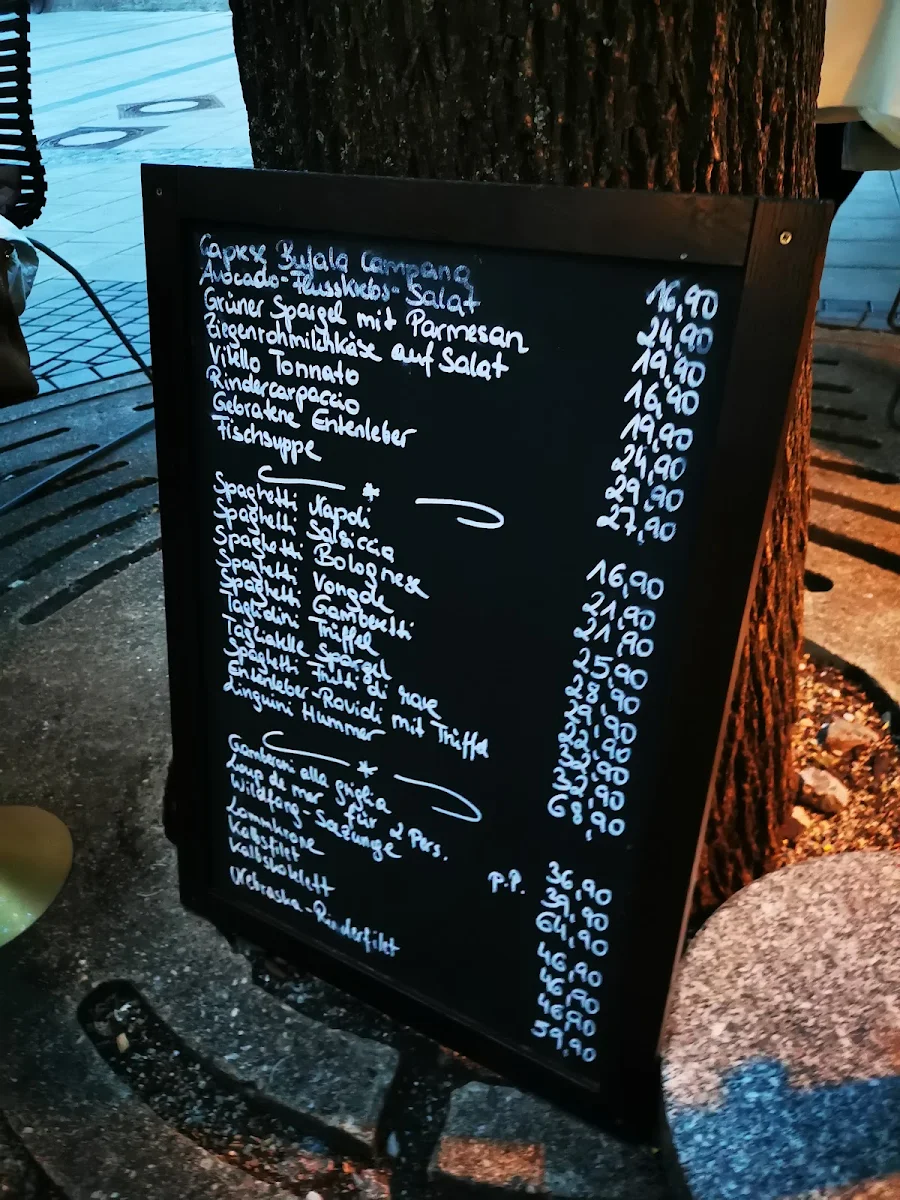 Caprese Bufala Campana 16,90
Avocado-Flusskrebs-Salat 24,90
Grüner Spargel mit Parmesan 19,90
Ziegenrohmilchkäse auf Salat 16,90
Vitello Tonnato 19,90
Rindercarpaccio 24,90
Gebratene Entenleber 29,90
Fischsuppe 27,90
*
Spaghetti Napoli 16,90
Spaghetti Salsiccia 21,90
Spaghetti Bolognese 21,90
Spaghetti Vongole 25,90
Spaghetti Gamberetti 28,90
Tagliolini Trüffel 29,90
Tagliatelle Spargel
Spaghetti Frutti di mare
Entenleber-Ravioli mit Trüffel
Linguini Hummer 68,90
*
Gamberoni alla griglia 36,90
Loup de mer für 2 Pers. p.P. 39,90
Wildfang-Seezunge 64,90
Lammkrone 46,90
Kalbsfilet 46,90
Kalbskotlett 46,90
Nebraska-Rinderfilet 59,90